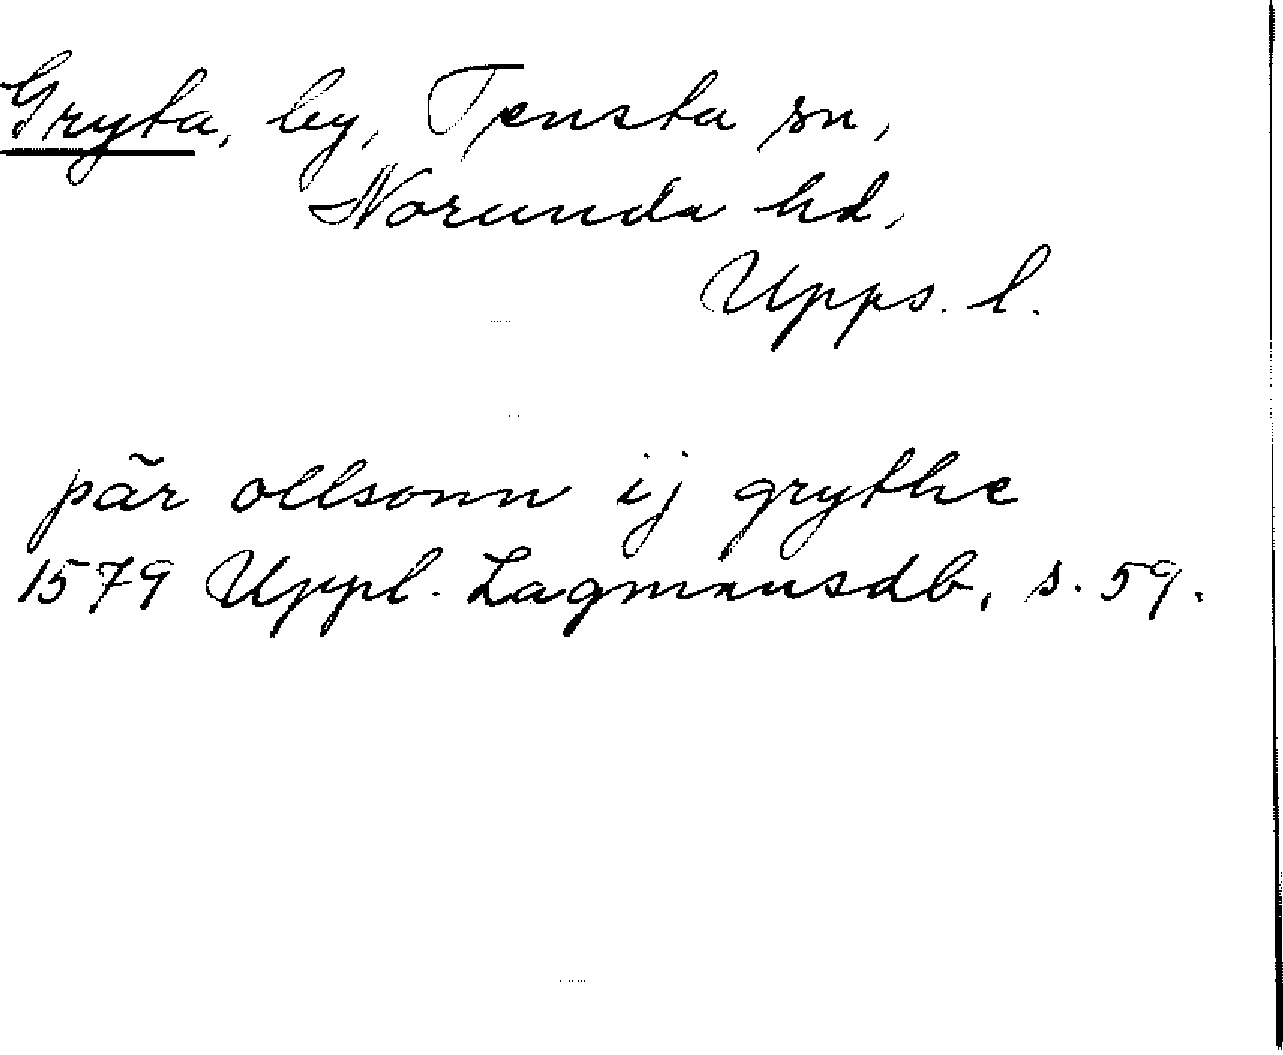 Gryta, by, Tensta sn,
Norunda hd,
Upps. l.
pär ollsonn ij grythe
1579 Uppl. Lagmansdb, s. 59.